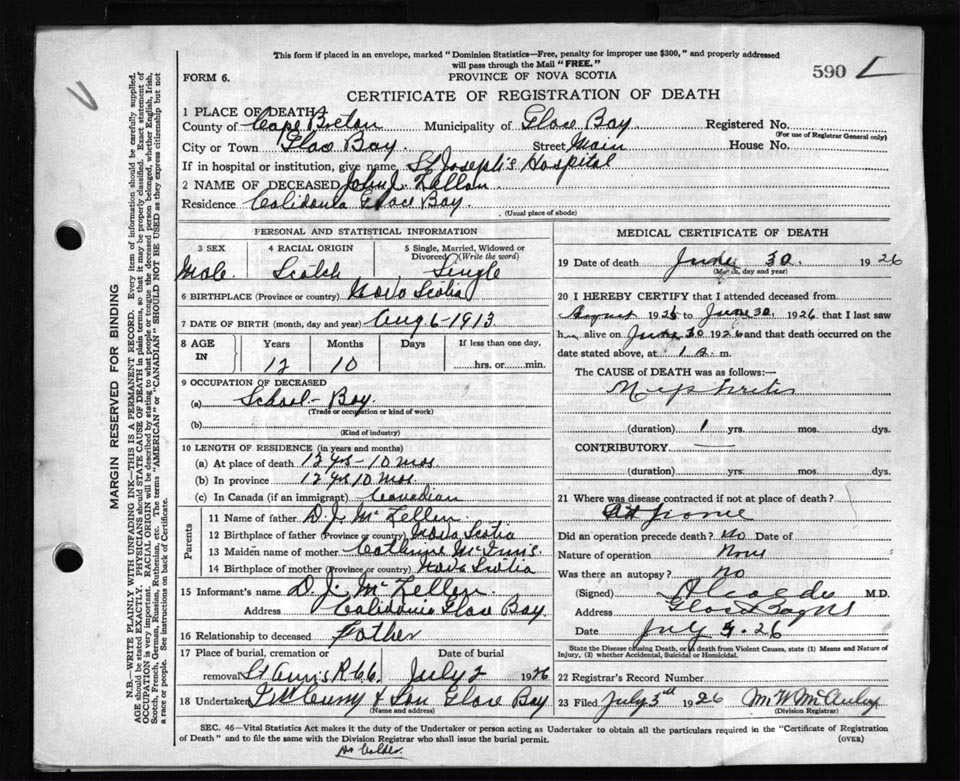 This form if placed in an envelope, marked "Dominion Statistics—Free, penalty for improper use $300," and properly addressed
will pass through the Mail "FREE."
FORM 6. PROVINCE OF NOVA SCOTIA 590
CERTIFICATE OF REGISTRATION OF DEATH
1 PLACE OF DEATH
County of Cape Breton Municipality of Glace Bay Registered No.
(For use of Registrar General only)
City or Town Glace Bay. Street Main House No.
If in hospital or institution, give name St Joseph's Hospital
2 NAME OF DECEASED John
Residence Calidonia Glace Bay.
(Usual place of abode)
PERSONAL AND STATISTICAL INFORMATION
3 SEX 4 RACIAL ORIGIN 5 Single, Married, Widowed or Divorced (Write the word)
Male Scotch Single
6 BIRTHPLACE (Province or country) Nova Scotia
7 DATE OF BIRTH (month, day and year) Aug 6-1913
8 AGE IN Years Months Days If less than one day,
12 10 hrs. or min.
9 OCCUPATION OF DECEASED
(a) School-Boy.
(Trade or occupation or kind of work)
(b)
(Kind of industry)
10 LENGTH OF RESIDENCE (in years and months)
(a) At place of death 12 yrs-10 mos.
(b) In province 12 yrs 10 mos.
(c) In Canada (if an immigrant) Canadian
Parents
11 Name of father D. J. Mc Lellan
12 Birthplace of father (Province or country) Nova Scotia
13 Maiden name of mother Catherine McInnis
14 Birthplace of mother (Province or country) Nova Scotia
15 Informant's name D. J. Mc Lellan
Address Calidonia Glace Bay.
16 Relationship to deceased Father
17 Place of burial, cremation or removal Date of burial
St Anns R.C.C. July 2 1926
18 Undertaker Curry & Son Glace Bay
(Name and address)
MEDICAL CERTIFICATE OF DEATH
19 Date of death June 30 1926
(Month, day and year)
20 I HEREBY CERTIFY that I attended deceased from
August 1925 to June 30, 1926 that I last saw
h alive on June 30 1926 and that death occurred on
date stated above, at 1 a. m.
The CAUSE of DEATH was as follows:—
Nephritis
(duration) 1 yrs. mos. dys.
CONTRIBUTORY —
(duration) yrs. mos. dys.
21 Where was disease contracted if not at place of death?
At Home
Did an operation precede death? No Date of
Nature of operation None
Was there an autopsy? No
(Signed) M.D.
Address Glace Bay NS
Date July 5. 26
State the Disease causing Death, or in death from Violent Causes, state (1) Means and Nature of
Injury, (2) whether Accidental, Suicidal or Homicidal.
22 Registrar's Record Number
23 Filed July 3rd 1926 M W McAuley
(Division Registrar)
SEC. 46—Vital Statistics Act makes it the duty of the Undertaker or person acting as Undertaker to obtain all the particulars required in the "Certificate of Registration
of Death" and to file the same with the Division Registrar who shall issue the burial permit. (OVER)
MARGIN RESERVED FOR BINDING
N.B.—WRITE PLAINLY WITH UNFADING INK—THIS IS A PERMANENT RECORD. Every item of information should be carefully supplied.
AGE should be stated EXACTLY. PHYSICIANS should STATE CAUSE OF DEATH in plain terms, so that it may be properly classified. Exact statement of
OCCUPATION is very important. RACIAL ORIGIN will be described by stating to what people or tongue the deceased person belonged, whether English, Irish,
Scotch, French, German, Russian, Ruthenian, etc. The terms "AMERICAN" or "CANADIAN" SHOULD NOT BE USED as they express citizenship but not
a race or people. See instructions on back of Certificate.